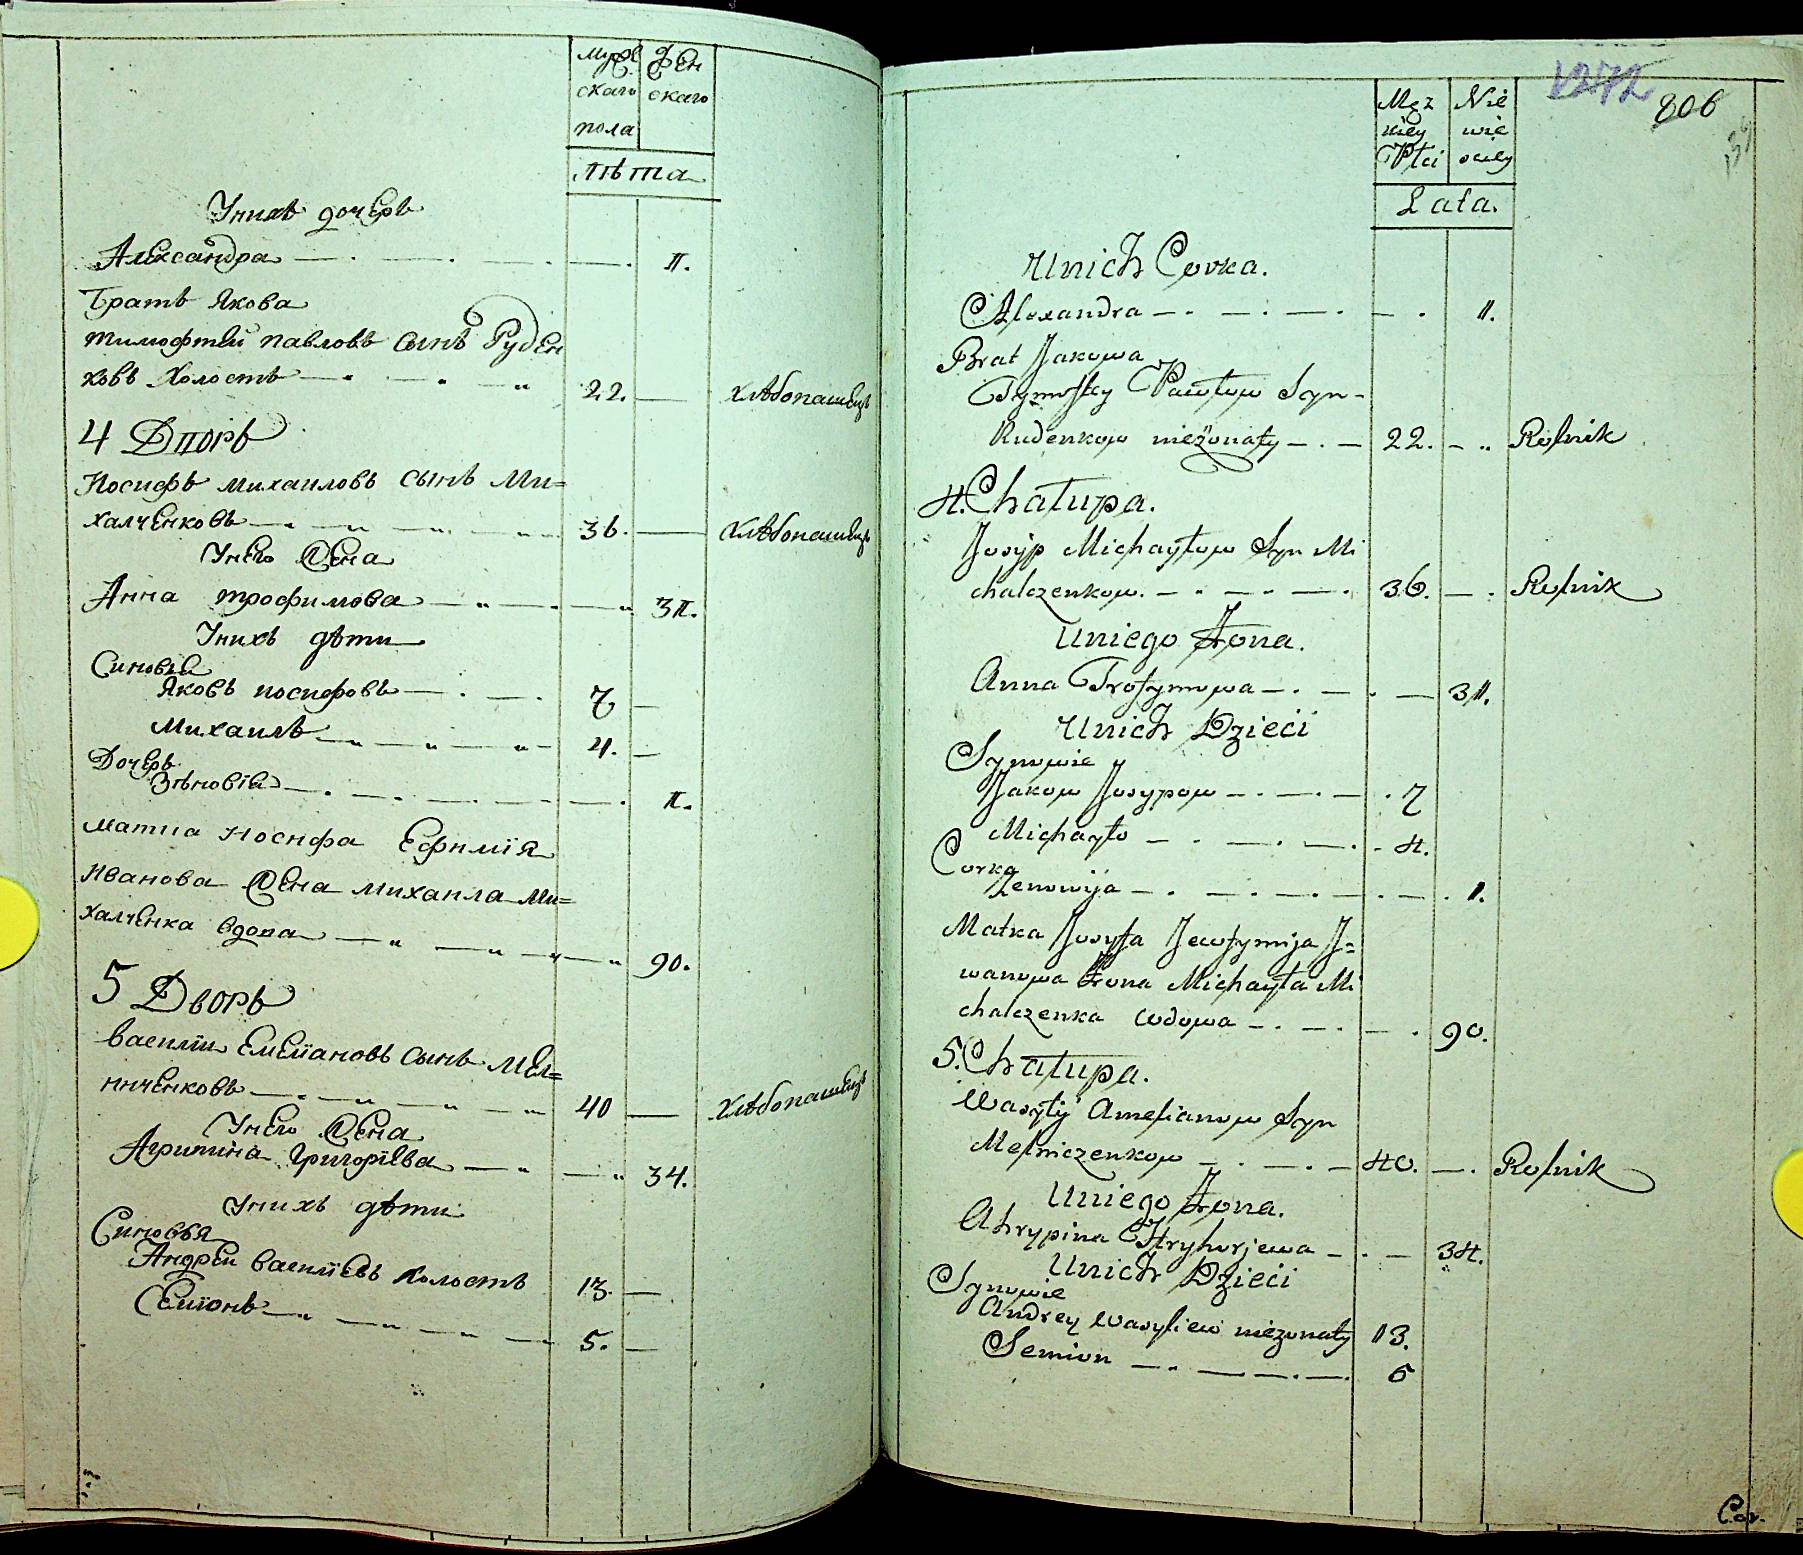 Мужескаго пола
Женскаго
Лѣта
Унихъ дочерь
Александра 11.
Братъ Якова
Тимофтей павловъ сынъ Руден
ковъ Холостъ 22. хлѣбопашецъ
4 Дворъ
Иосифъ михаиловъ сынъ Ми=
халченковъ 36. хлѣбопашецъ
Унего Жена
Анна трофимова 31.
Унихъ дѣти
Синовья
Яковъ иосифовъ 7
Михаилъ 4.
Дочерь
Зѣновія 1.
матка Носифа Ефимія
Иванова Жена михаила Ми=
халченка вдова 90.
5 Дворъ
василіи Емелiановъ сынъ Мел=
ниченковъ 40 хлѣбопашецъ
Унего Жена
Агрипина григоріева 34.
Унихъ дѣти
Синовья
Андрей василіевъ холостъ 13.
Семіонъ 5.
1272
806
Męzkiey Płci
Niewieściey
Lata.
Unich Corka.
Alexandra 11.
Brat Jakowa
Tymoftey Pawłow Syn-
Rudenkow nieżonaty 22. Rolnik
4. Chałupa.
Josyp Michayłow Syn Mi
chalczenkow. 36. Rolnik
Uniego Żona.
Anna Trofymowa 31.
Unich Dzieci
Synowie
Jakow Josypow 7
Michayło 4.
Corka
Zenowija 1.
Matka Josyfa Jewfymija J=
wanowa Żona Michayła Mi
chalczenka wdowa 90.
5. Chałupa.
Wasyly Amelianow Syn
Melniczenkow 40. Rolnik
Uniego Żona.
Ahrypina Hryhorjewa 34.
Unich Dzieci
Synowie
Andrey Wasyliew nieżonaty 13.
Semion 5
Cor.